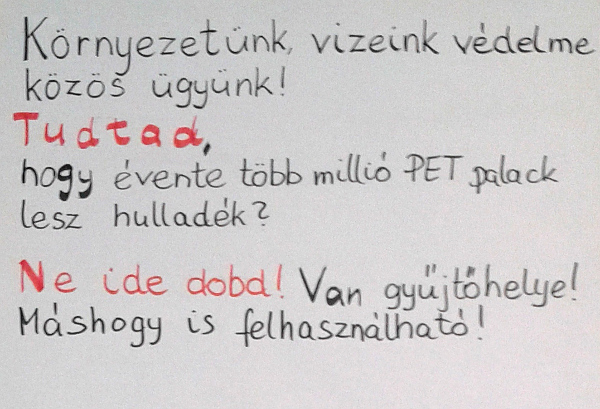 Környezetünk, vizeink védelme
közös ügyünk!
Tudtad,
hogy évente több millió PET palack
lesz hulladék?
Ne ide dobd! Van gyűjtőhelye!
Máshogy is felhasználható!